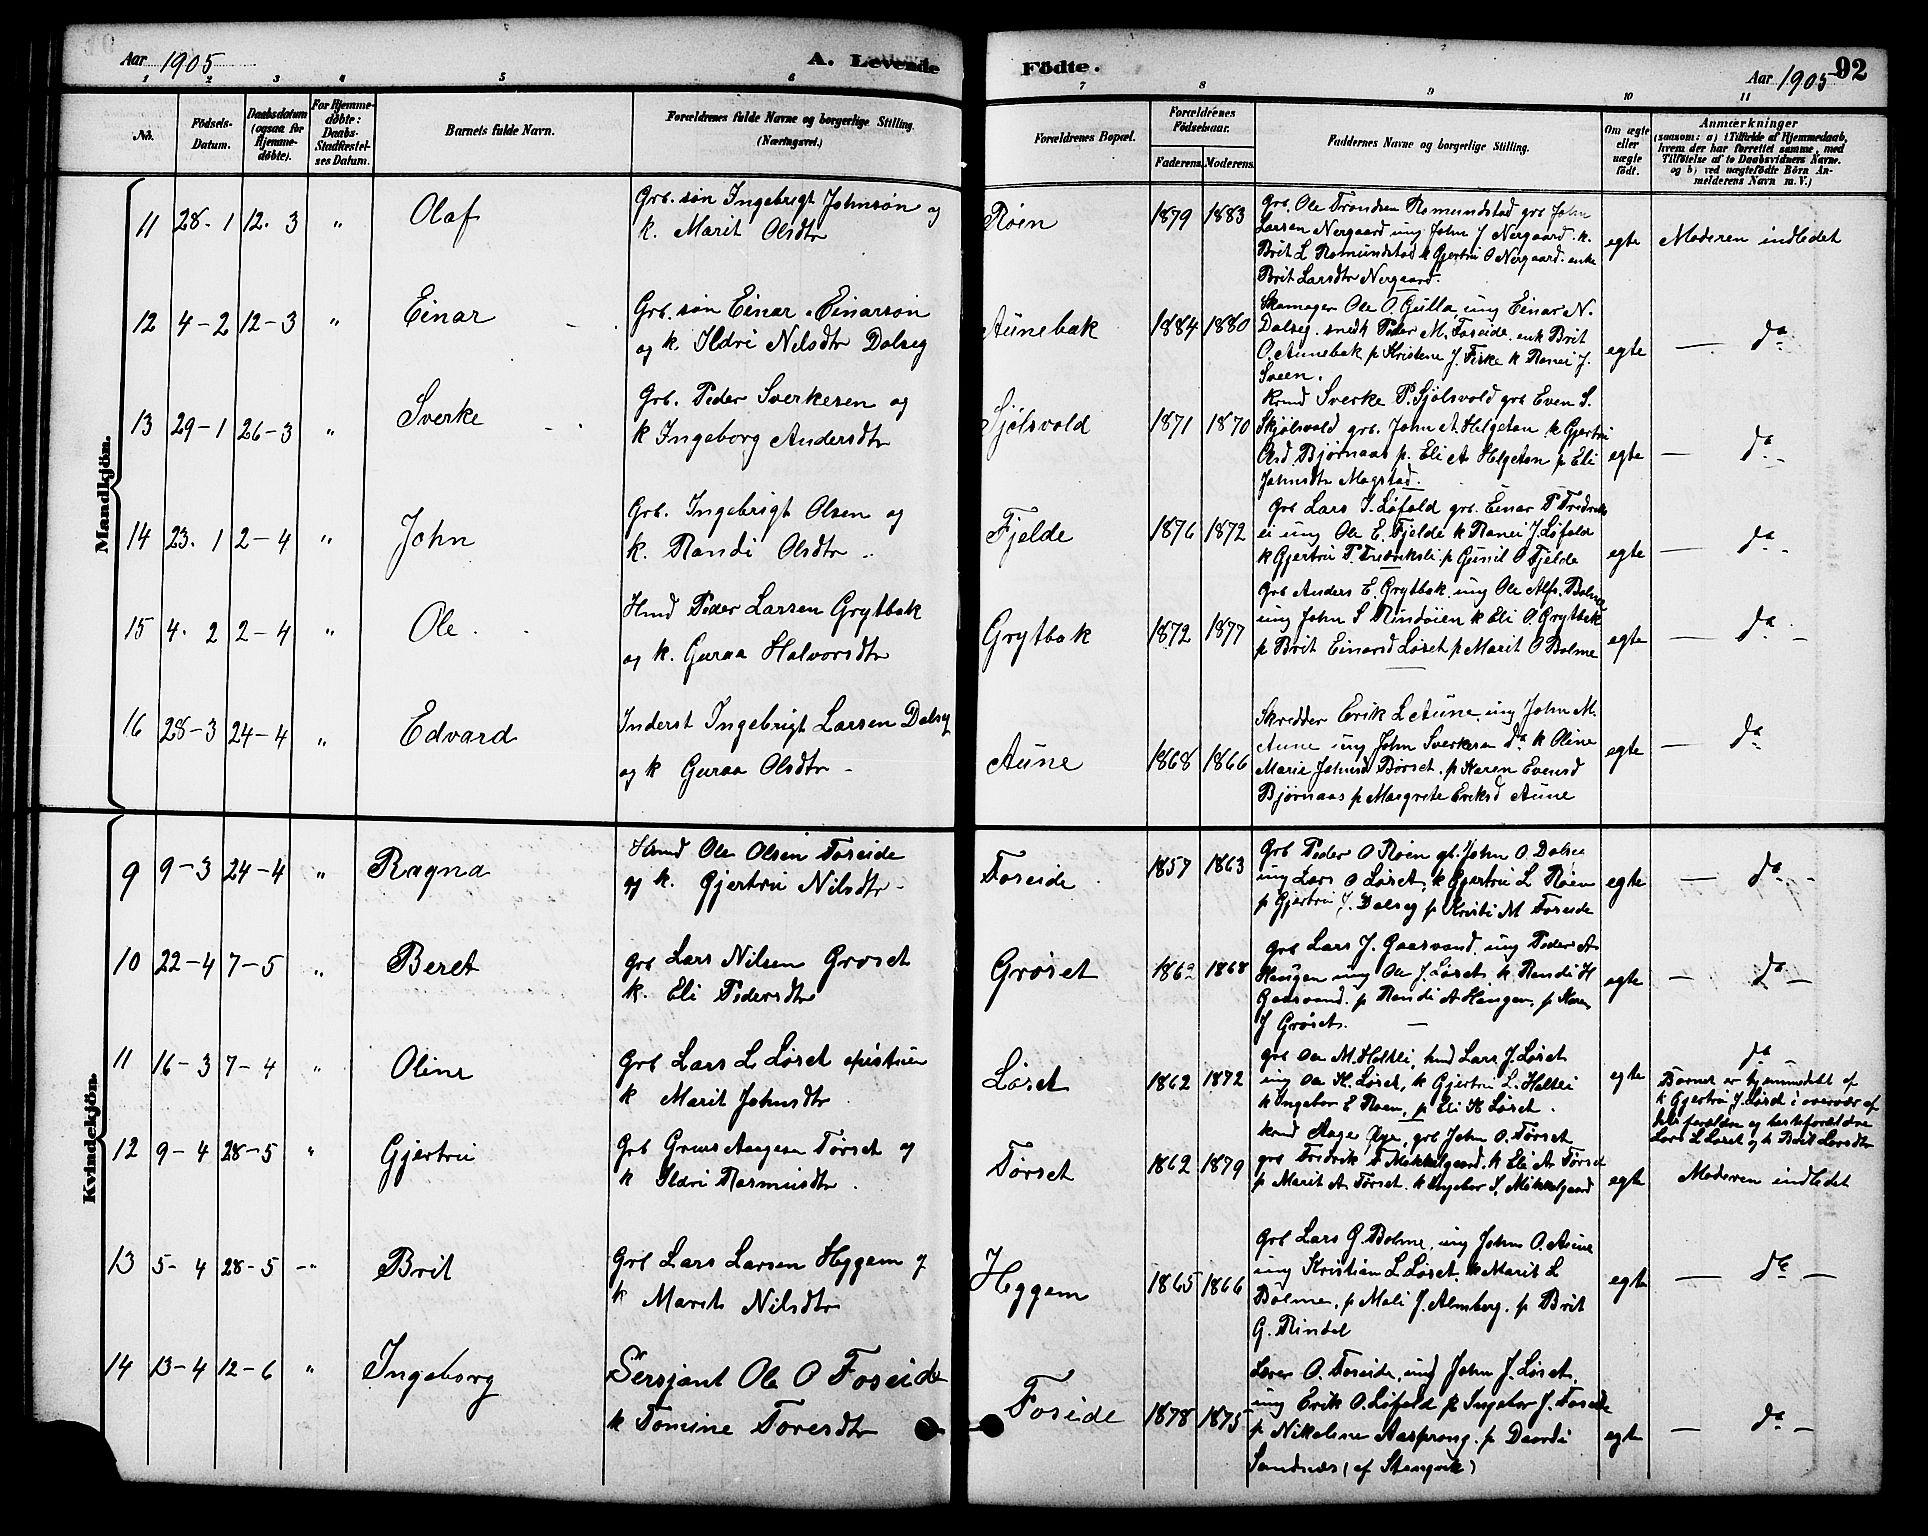 Aar 1905
A. Levende
Födte.
Aar 1905
92
1 2 3 4 5 6 7 8 9 10 11
No.
Födsels-
Datum.
Daabsdatum
(ogsaa for
Hjemme-
döbte).
For Hjemme-
döbte:
Daabs-
Stadfæstel-
ses Datum.
Barnets fulde Navn.
Forældrenes fulde Navne og borgerlige Stilling.
(Næringsvei.)
Forældrenes Bopæl.
Forældrenes
Födselsaar.
Faderens. Moderens.
Faddernes Navne og borgerlige Stilling.
Om ægte
eller
uægte
født.
Anmærkninger
(saasom: a) i Tilfælde af Hjemmedaab,
hvem der har forrettet samme, med
Tilföielse af to Daabsvidners Navne.
og b) ved uægtefödte Börn An-
melderens Navn m. V.)
Mandkjön.
11 28. 1 12. 3 " Olaf
Grb. søn Ingebrigt Johnsøn og
k. Marit Olsdtr
Røen 1879 1883
grb. Ole Trondsen Romundstad grb John
Larsen Nergaard ung John J Nergaard. k.
Brit L Romundstad k Gjertru O Nergaard. enke
Brit Larsdtr Nergaard.
egte Moderen indledet
12 4-2 12-3 " Einar
Grb. søn Einar Einarsøn
og k. Ildri Nilsdtr Dalseg
Aunebak 1884 1880
Skomager Ole O. Gulla ung Einar N.
Dalseg. snedk Peder M. Foseide. enk Brit
O. Aunebak p Kristene J. Fiske k Ranei J.
Sveen.
egte — da
13 29-1 26-3 " Sverke
Grb. Peder Sverkesen og
k Ingeborg Andersdtr
Sjølsvold 1871 1870
Kmd Sverke P. Sjølsvold grb Even S.
Skjølsvold grb. John A. Helgeton k Gjertru
Olsd Bjørnaas p. Eli A Helgeton p Eli
Johnsdtr Mogstad.
egte — da -
14 23. 1 2-4 " John
Grb. Ingebrigt Olsen og
k. Randi Olsdtr
Fjelde 1876 1872
grb Lars J. Løfald grb. Einar P Fredriks
li ung Ole E. Fjelde k Ranei J. Løfald
k Gjertru P. Fredriksli p Gunil O Fjelde
egte — da -
15 4. 2 2-4 " Ole
Hmd Peder Larsen Grytbak
og k. Guraa Halvorsdtr
Grytbak 1872 1877
grb Anders E. Grytbak ung Ole Alfs. Bolme
ung John S Rindøien k Eli O. Grytbak
p Brit Einarsd Løset p Marit O Bolme
egte — da -
16 28-3 24-4 " Edvard
Inderst Ingebrigt Larsen Dalseg
og k Guraa Olsdtr -
Aune 1868 1866
Skredder Erik L Aune ung John M.
Aune ung John Sverkesen da k Oline
Marie Johnsd Børset. p Karen Evensd
Bjørnaas p Margrete Eriksd Aune
egte — da
Kvindekjön.
9 9-3 24-4 " Ragna
Kmd Ole Olsen Foseide
og k. Gjertru Nilsdtr -
Foseide 1857 1863
Grb Peder O Røen gb. John O. Dalseg
ung Lars O Løset, k Gjertru L Røen
p Gjertru J. Dalseg p Kristi M Foseide
egte — da -
10 22-4 7-5 " Beret
Grb Lars Nilsen Grøset
k. Eli Pedersdtr
Grøset 1862 1868
grb Lars J. Gaasvand, ung Peder A
Haugen ung Ole J. Løset, k Randi H
Gaasvand. p Randi A Haugen, p Karen
J Grøset. —
egte — da —
11 16-3 7-4 " Oline
Grb Lars L Løset
k Marit Johnsdtr
Løset 1862 1872
grb Ole M. Holtli, kmd Lars J. Løset
ung Ole H. Løset, k Gjertru L. Holtli
k Ingebor E Røen, p Eli H Løset.
egte da
Barnet er hjemmedøbt af
k Gjertru J. Løset i overvær af
forældre og bestforældre
Lars L Løset og k Brit Larsdtr
12 9-4 28-5 " Gjertru
Grb Aagesen Tørset og
k Ildri Rasmusdtr.
Tørset 1862 1879
kmd Aage Øye, grb John O. Tørset
grb Fredrik F Mikkelgaard. k Eli A Tørset
p Marit A. Tørset. k Ingebor S. Mikkelgaard
egte Moderen indledet
13 5-4 28-5 -" Brit
Grb Lars Larsen Heggem og
k Marit Nilsdtr
Heggem 1865 1866
Grb Lars G. Bolme, ung John O. Aune
ung Kristian L Løset, k Marit L
Bolme, p Mali J. Almberg. p Brit
G. Rindal
egte — da —
14 13-4 12-6 " Ingeborg
Sersjant Ole O Foseide
k Tomine Toresdtr
Foseide 1878 1875
Lærer O. Foseide, ung John J. Løset,
ung Erik O. Løfald p Ingebor J. Foseide
p Nikoline Aasprong. p Daardi
Sandnes (af Stangvik)
egte — da —